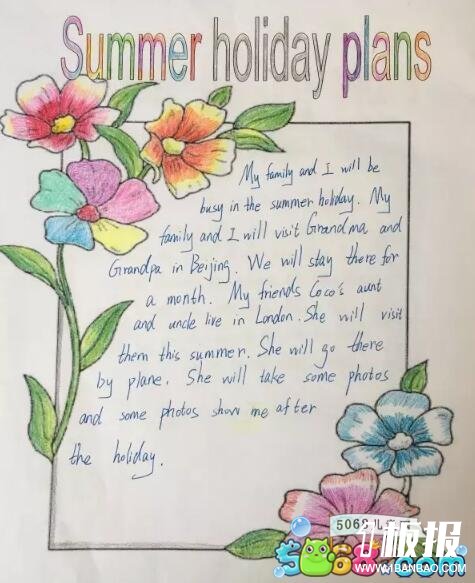 Summer holiday plans
My family and I will be
busy in the summer holiday. My
family and I will visit Grandma and
Grandpa in Beijing. We will stay there for
a month. My friends Coco's aunt
and uncle live in London. She will visit
them this summer. She will go there
by plane. She will take some photos
and some photos show me after
the holiday.
板报
WWW.1BANBAO.COM